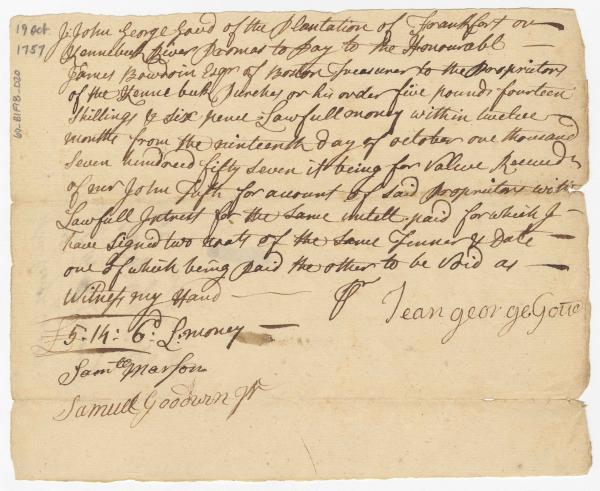 19 Oct.
1757
60-B1F18-020
I John George Goud of the Plantation of Frankfort on
Kennebek River Promas to Pay to the Honourable
James Bowdoin Esqr of Boston Treasurer to the Propriators
of the Kennebek Purches or his order five pounds fourteen
Shillings & six pence Lawfull money within twelve
months from the nineteenth day of october one thousand
Seven hundred fifty seven it being for Value Received
of mr John for account of said Propriators with
Lawfull Intrest for the Same untill paid for which I
have Signed two noats of the Same Tenner & Date
one of which being Paid the other to be Void as
Witness my Hand
Jean george Goud
£5:14:6d L: money
Samll Marson
Samuell Goodwin Jr